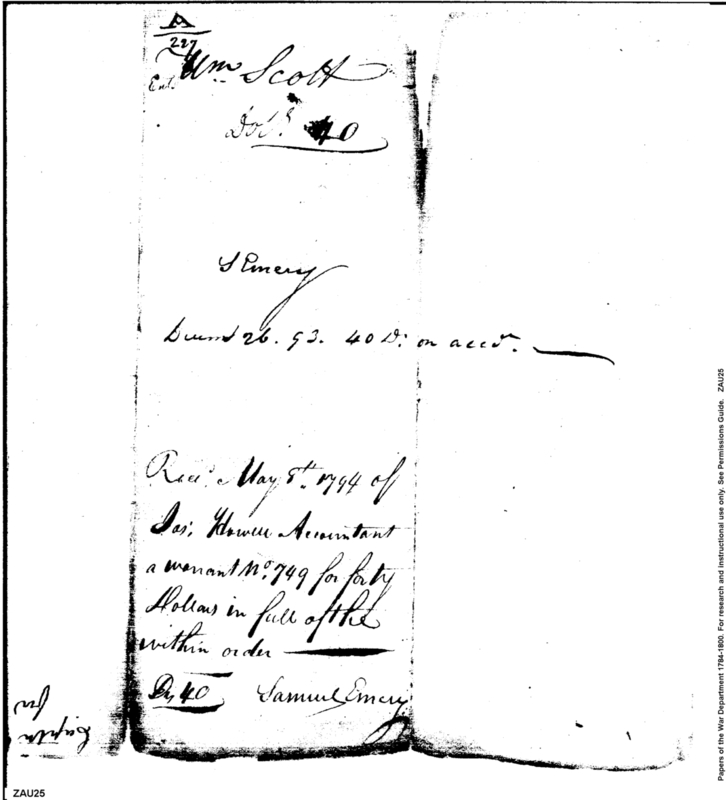 A
227
Ent. Wm Scott
Dols. 40
S Emery
26. 93. 40 D. on accot.
Recd. May 8th. 1794 of
Jos. Howell Accountant
a warrant No. 749 for forty
Dollars in full of the
within order
Ds 40 Samuel Emery
for
Papers of the War Department 1784-1800. For research and instructional use only. See Permissions Guide. ZAU25
ZAU25